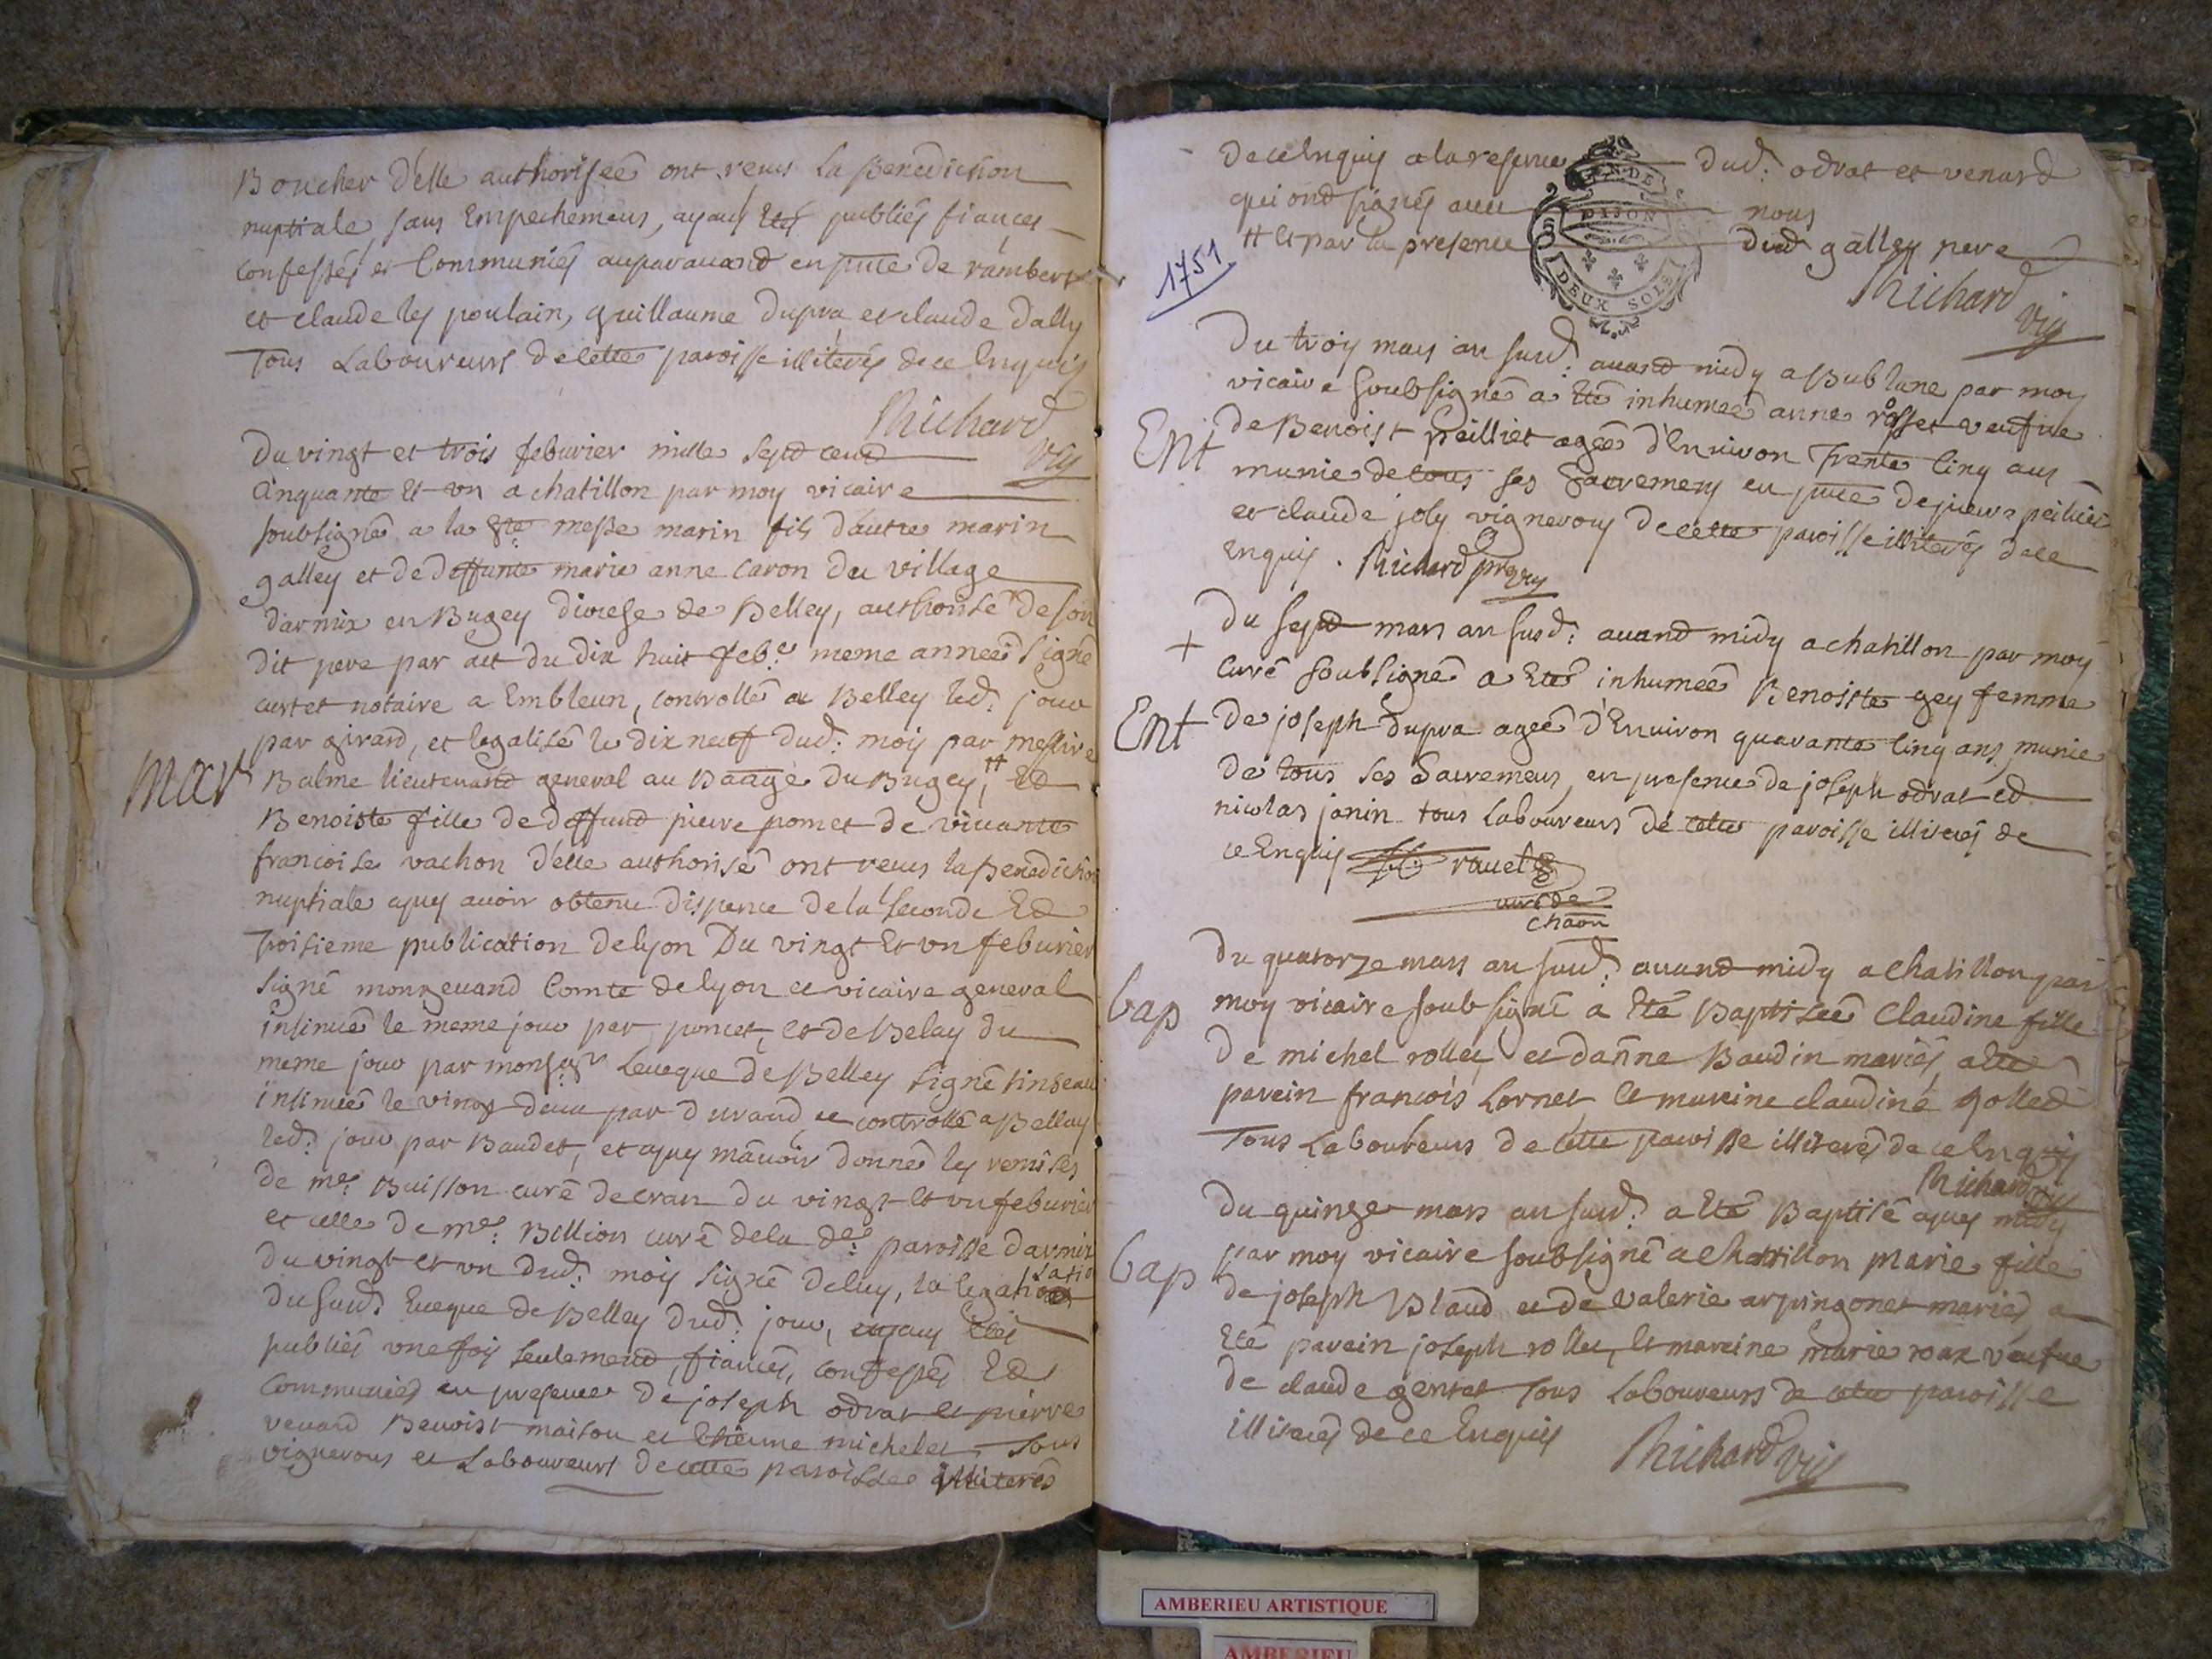 Boucher d'elle authorisée ont reçus la Benediction
nuptiale, sans Empechemens, ayans Etés publiés fiancés
confessés et Communiés auparavand en pnce de rambert
et claude les poulain, guillaume dupra et claude dally
Tous Laboureurs de cette paroisse illiterés de ce Enquis
Richard
vic
Du vingt et trois feburier mille sept cend
Cinquante Et un a chatillon par moy vicaire
soubsigné a la Ste messe marin fils d'autre marin
galley et de deffunte marie anne Caron du village
darmix en Bugey diocese de Belley, authorisé de son
dit pere par act du dix huit feb.er meme année signé
curtet notaire a Embleun, controllé a Belley led: jour
par girard, et legalisé le dix neuf dud: mois par messire
Mar
Balme lieutenand general au Baage du Bugey, ++ Ed
Benoiste fille de deffund pierre pomet de vivante
francoise vachon d'elle authorisé ont reçus la Benediction
nuptiale apres avoir obtenu dispence de la seconde Ed
Troisieme publication de lyon Du vingt Et un feburier
signé monjevand Comte de lyon et vicaire general
insinuée le meme jour par poncet, et de Belay du
meme jour par monsgr Leveque de Belley signé tinseau
insinuée le vingt deux par durand et controllé a Bellay
led: jour par Baudet, et apres m'avoir donnés les remises
de mre Buisson curé de cran du vingt Et un feburier
et celle de mre: Bellion curé de la de: paroisse darmix
du vingt et un dud: mois signé de luy, la legalisation
du sud: Eveque de Belley dud: jour, Etés
publiés une fois seulemend, fiancés, confessés Ed
Communiés en presence de joseph odrat et pierre
venard Benoist maison et Etienne michelet, Tous
vignerons et Laboureurs de cette paroisse illiterés
de ce Enquis a la reserve dud: odrat et venard
qui ond signés avec nous
++ Et par la presence dud galley pere
1751
DIJON
DEUX SOLS
Richard
vic
Du trois mars an susd: avand midy a Bublane par moy
vicaire soubsigné a Eté inhumée anne rosset veufve
Ent
de Benoist peilliet agée d'Environ Trente Cinq ans
munie de tous ses Sacremens en pnce de pierre peilliet
et claude joly vignerons de cette paroisse illiterés de ce
Enquis. Richard pre vic
+
Du sept mars an susd: avand midy a chatillon par moy
Curé soubsigné a Eté inhumée Benoiste gey femme
Ent
de joseph dupra agée d'Environ quarante Cinq ans, munie
de tous ses Sacremens, en presence de joseph odrat ed
nicolas janin tous Laboureurs de cette paroisse illiterés de
ce Enquis ravet
curé de
chaon
Du quatorze mars an susd: avand midy a chatillon par
Bap
moy vicaire soubsigné a Eté Baptisée Claudine fille
de michel rollet et d'anne Baudin mariés, a Eté
parein francois Cornet Et mareine claudine rolled
Tous Laboureurs de cette paroisse illiterés de ce Enquis
Richard vic
Du quinze mars an susd: a Eté Baptisé apres midy
Bap
par moy vicaire soubsigné a chatillon marie fille
de joseph Blaud et de valerie arpingonet mariés, a
Eté parein joseph rollet, Et mareine marie roax veufve
de claude gentet Tous Laboureurs de cette paroisse
illiterés de ce Enquis
Richard vic
AMBERIEU ARTISTIQUE
AMBERIEU